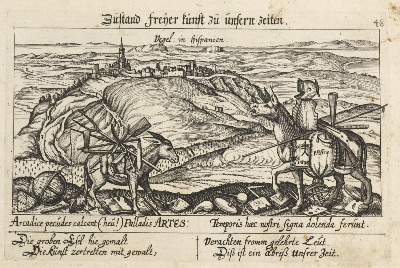 Zustand freÿer kunst zu unsern zeiten.
48
Vegel in Hispanien
Arcadicæ pecudes calcant (heu!) Palladis ARTES:
Temporis hæc nostri signa dolenda ferunt.
Die groben Esel hie gemalt,
Die Kunst zertretten mit gewalt,
Verachten fromm gelehrte Leüt
Diß ist ein abreiß Unsrer Zeit.